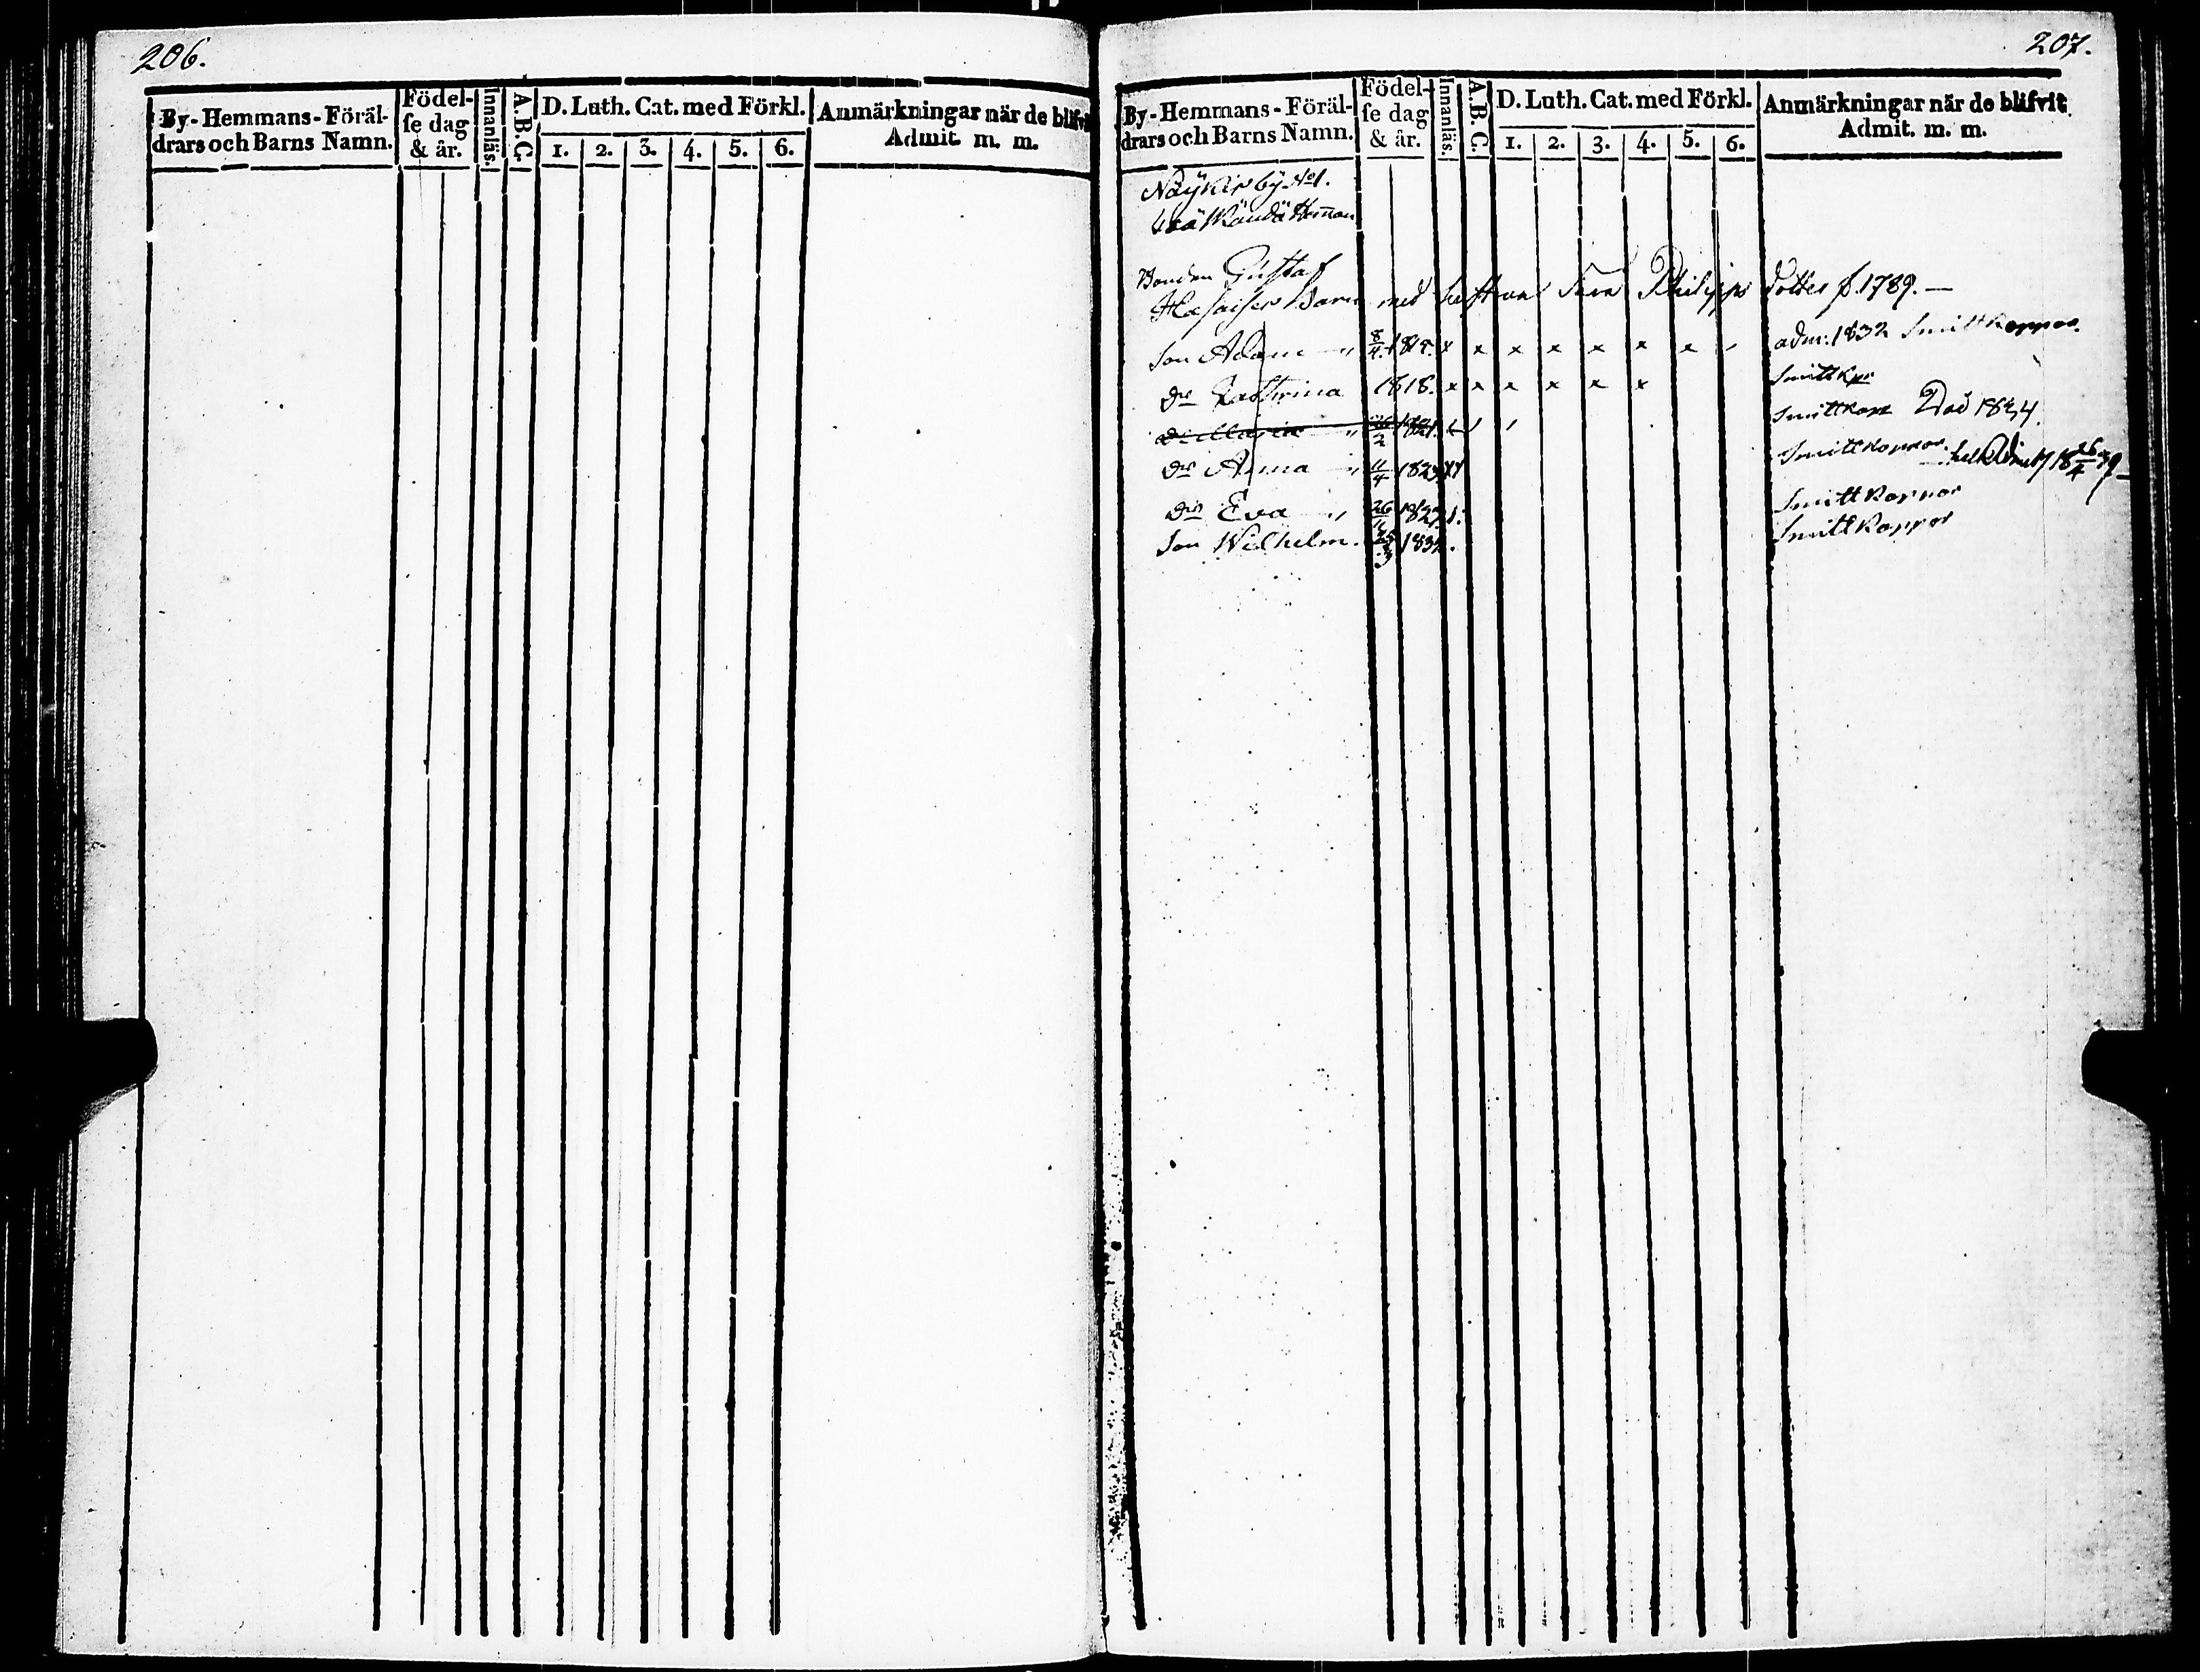 206.
By-Hemmans-Föräl-
drars och Barns Namn.
Födel-
se dag
& år.
Innanläs.
A.B.C.
D. Luth. Cat. med Förkl.
1. 2. 3. 4. 5. 6.
Anmärkningar när de blifvi
Admit. m. m.
207.
By-Hemmans-Föräl-
drars och Barns Namn.
Födel-
se dag
& år.
Innanläs.
A.B.C.
D. Luth. Cat. med Förkl.
1. 2. 3. 4. 5. 6.
Anmärkningar när de blifvit
Admit. m. m.
by No 1.
Bonden Gustaf
Barn med hustrun Philipps dotter f. 1789. —
Son Adam 8/4 x x x x x x x adm: 1832 Smittkoppor.
Dr 1818. x x x x x x Smittkpr
Dr Maria 2 1821. Smittkopr Död 1834.
Dr Anna 11/4 1823 Smittkoppor
Dr Eva 26 1827 Smittkoppor
Son Wilhelm. 25/3 1832. Smittkoppor